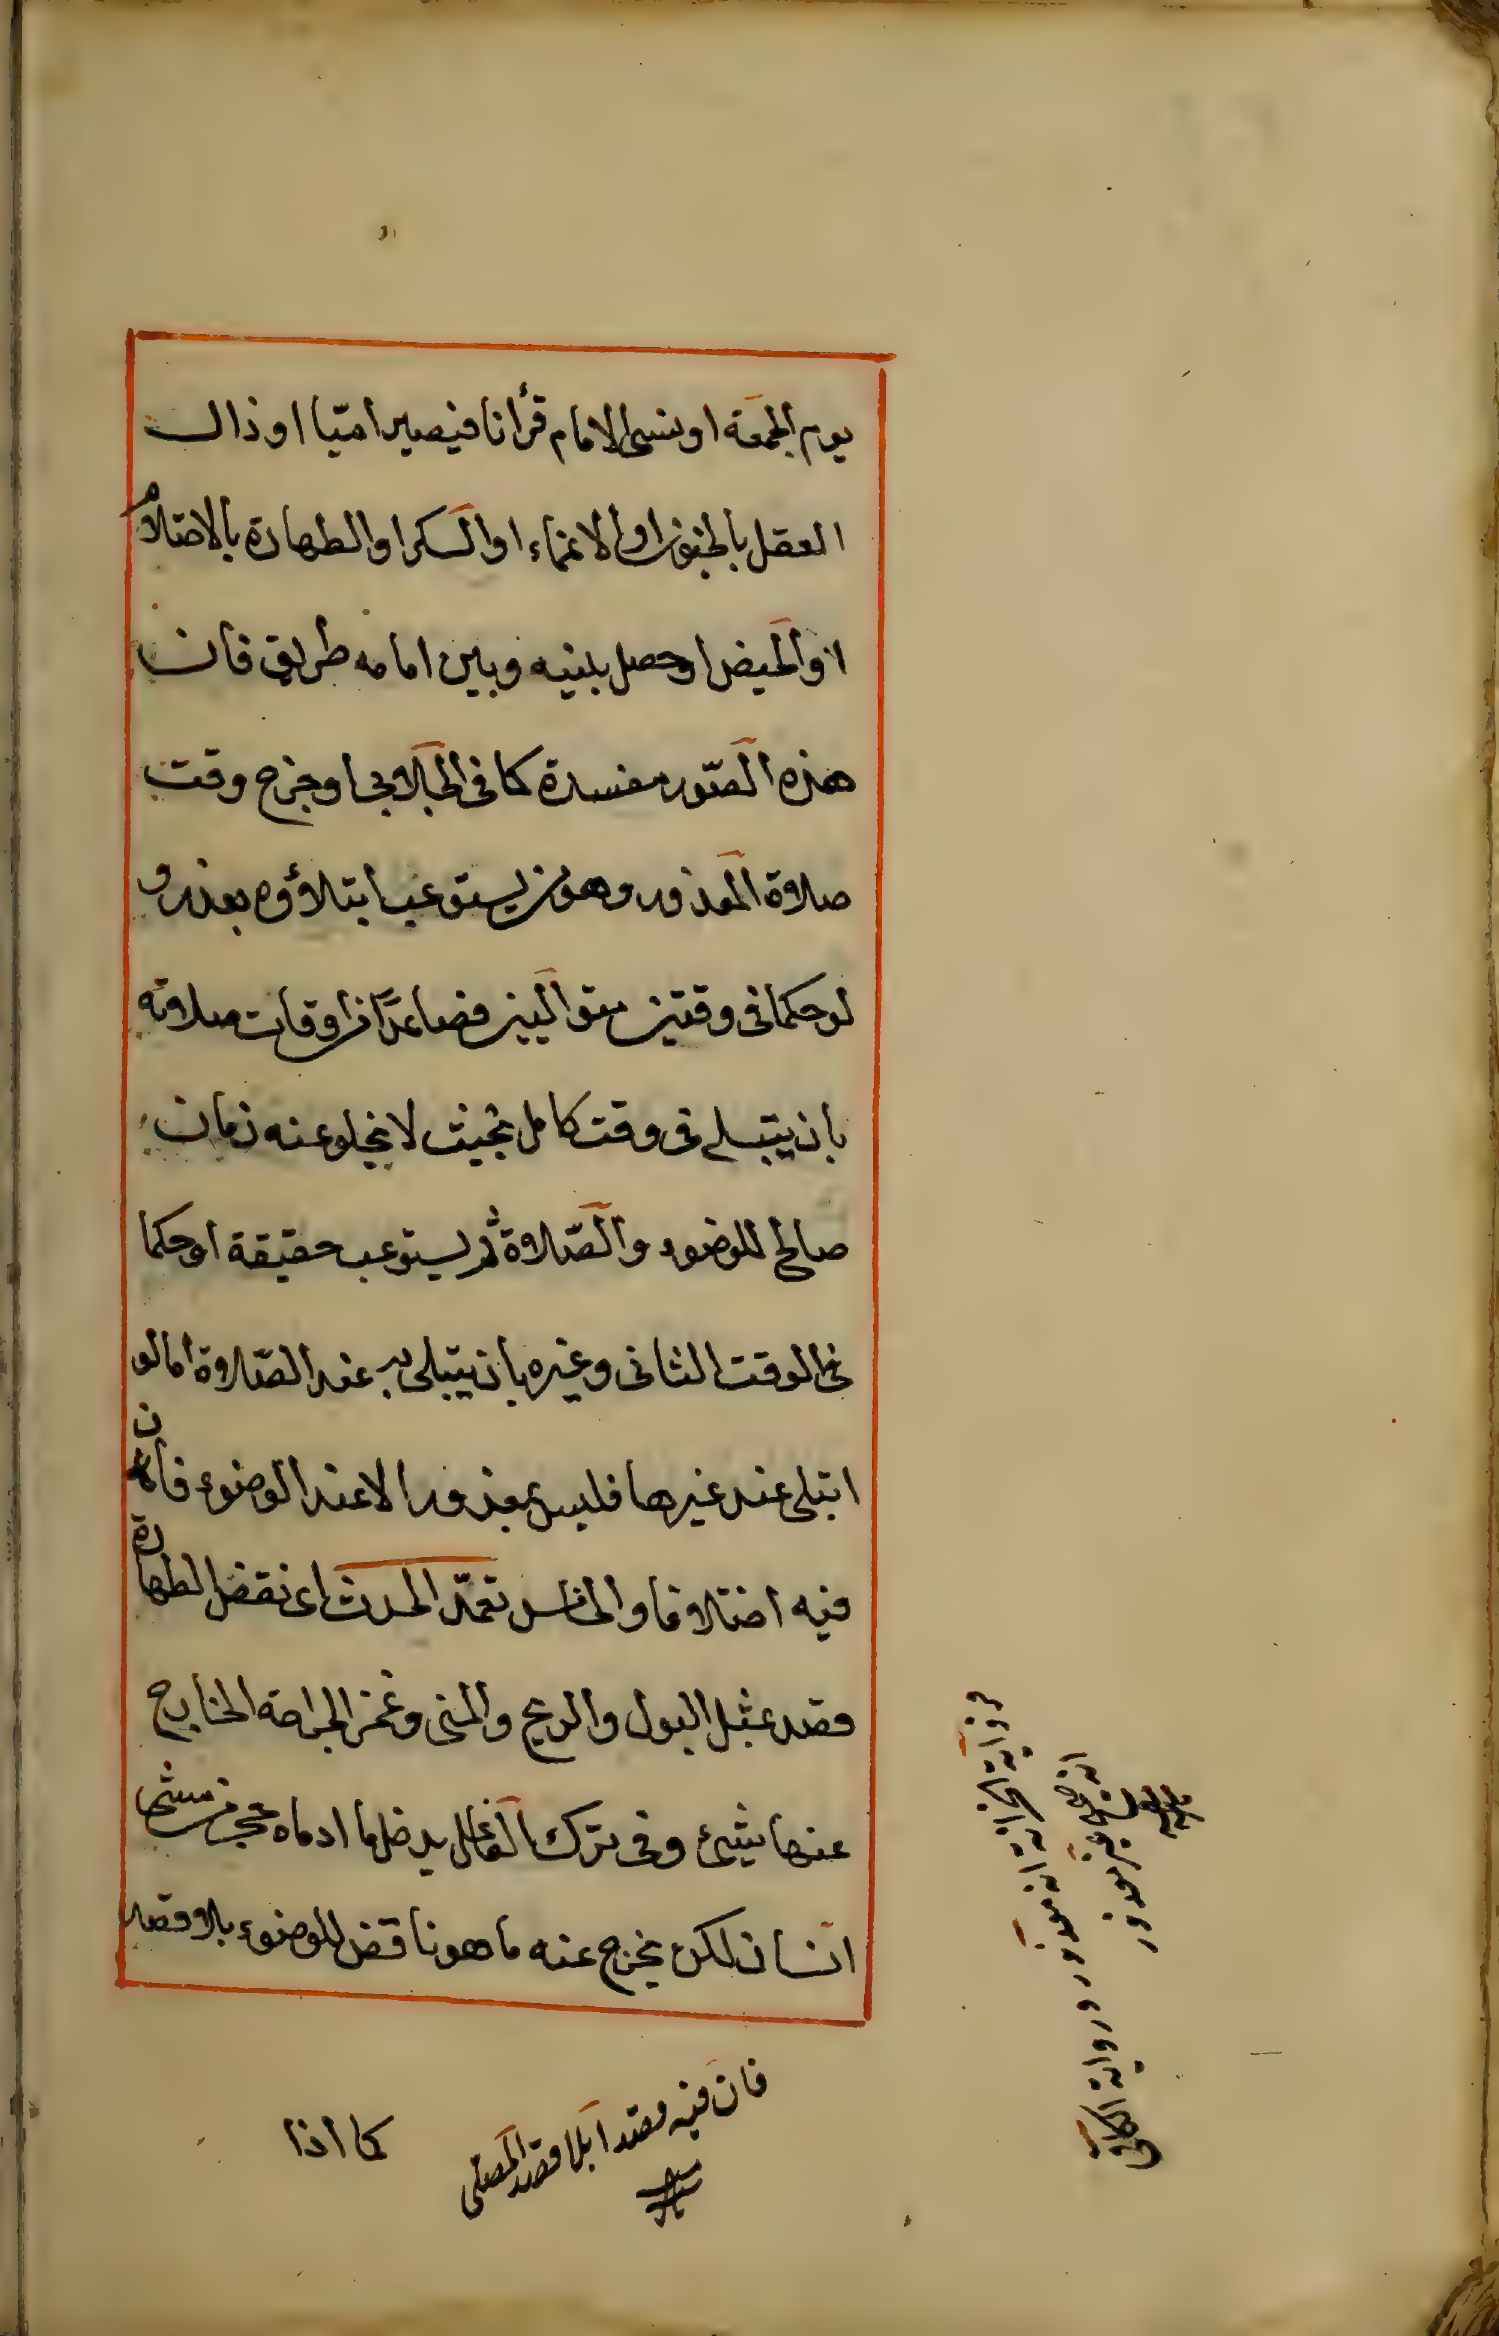 يوم الجمعة او نسى الامام قرأنا فيصير اميّا او ذال
العقل بالجنون او الاغماء او السكر او الطهارة بالاحتلام
او الحيض او حصل بينه وبين امامه طريق فان
هذه الصّور مفسدة كما فى الجلابى او خرج وقت
صلاة المعذور وهو من يستوعب ابتلاؤه بعذر و
لو حكما فى وقتين متواليين فصاعدًا من اوقات صلاته
بان يبتلى فى وقت كامل بحيث لا يخلو عنه زمان
صالح للوضوء والصّلاة ثم يستوعب حقيقة او حكما
فى الوقت الثانى وغيره بان يبتلى به عند الصّلاة اما لو
ابتلى عند غيرها فليس بمعذور الا عند الوضوء فان
فيه اختلافا والخامس تعمّد الحدث اى نقض الطهارة
قصد بمثل البول والريح والمنى وغمز الجراحة الخارج
عنها شيئ وفى ترك الفاعل يدخل ما ادماه حجر مشى
انسان لكن يخرج عنه ما هو ناقض للوضوء بلا قصد
فان فيه قصدا بلا قصد المصلى
كما اذا
رواية الخزانة انه معذور ورواية الكافى
انه غير معذور